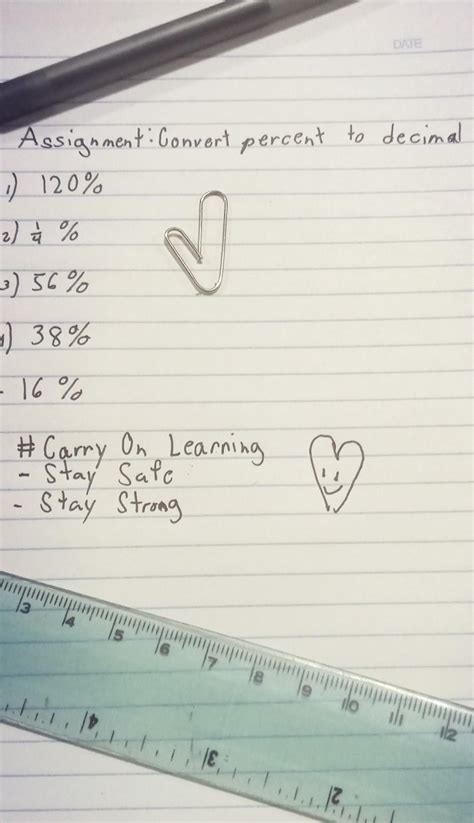 DATE
Assignment: Convert percent to decimal
1) 120%
2) 1/4 %
3) 56%
4) 38%
- 16 %
# Carry On Learning
- Stay Safe
- Stay Strong
3 4 5 6 7 8 9 10 11 12
4 3 2